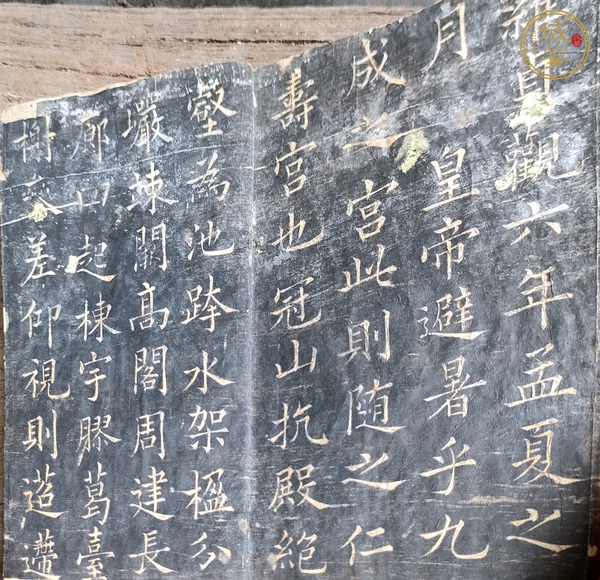 維貞觀六年孟夏之
月 皇帝避暑乎九
成之宮此則随之仁
壽宮也冠山抗殿絶
壑為池跨水架楹分
巖竦闕高閣周建長
廊四起棟宇膠葛臺
榭參差仰視則迢遰